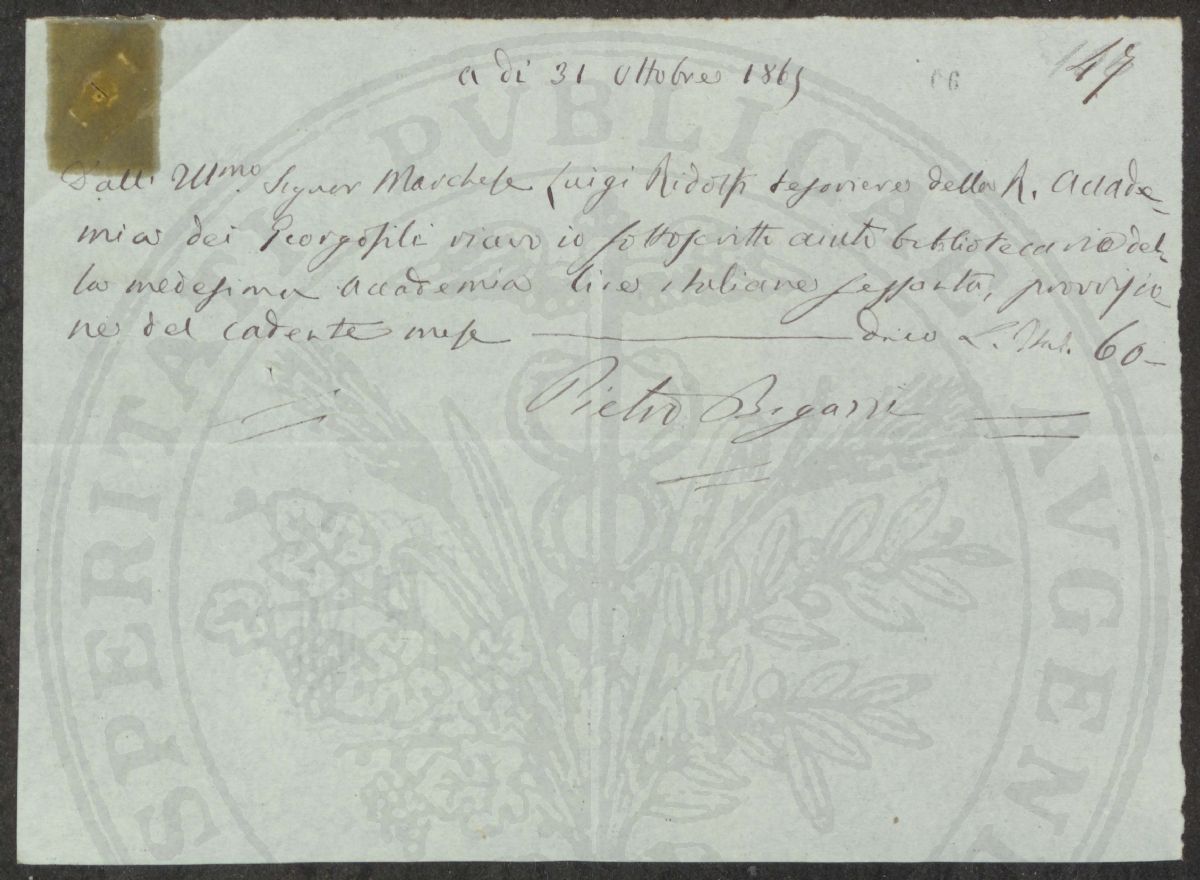 a dì 31 Ottobre 1865
147
Dall' Illmo. Signor Marchese Luigi Ridolfi tesoriere della R. Accade-
mia dei Georgofili ricevo io sottoscritto aiuto bibliotecario del-
la medesima Accademia lire italiane sessanta, provvisio-
ne del cadente mese ——— dico L. Ital. 60—
Pietro Bigazzi
PROSPERITATI PVBLICAE AVGENDAE